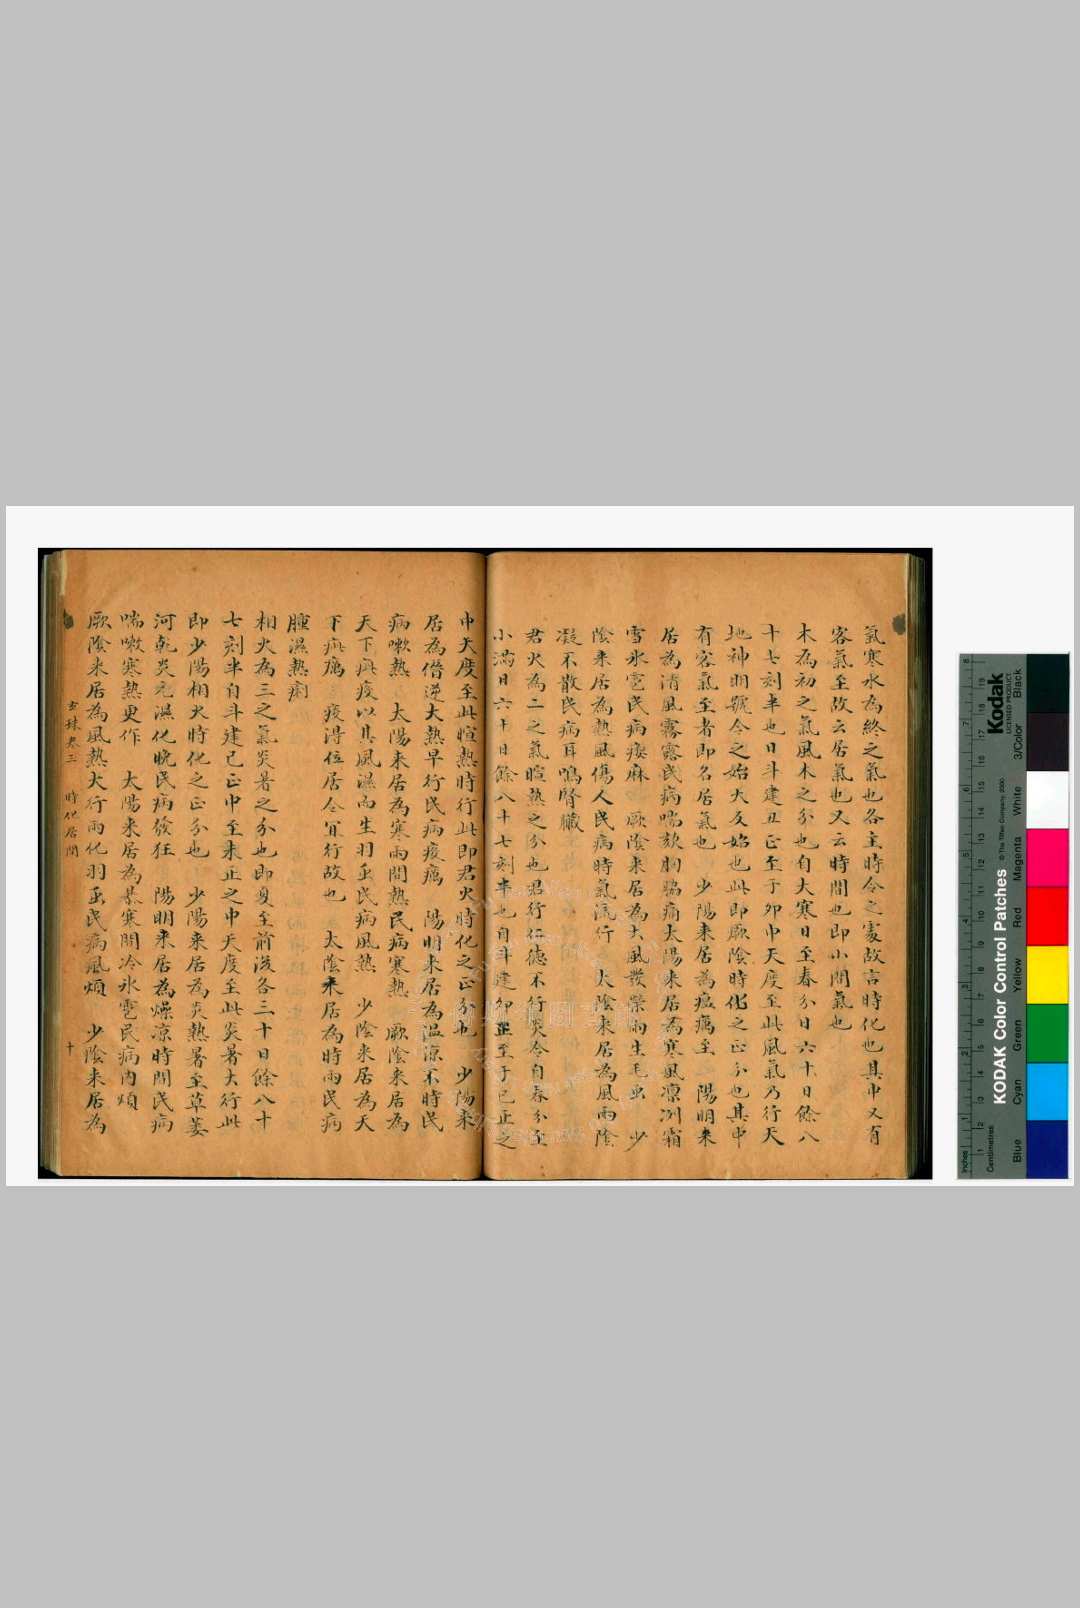 氣寒水為終之氣也各主時令之處故言時化也其中又有
客氣至故云居氣也又云時間也即小間氣也
木為初之氣風木之分也自大寒日至春分日六十日餘八
十七刻半也日斗建丑正至于卯中天度至此風氣乃行天
地神明號令之始天友始也此即厥陰時化之正分也其中
有客氣至者即名居氣也 少陽來居為瘟癘至 陽明來
居為清風霧露民病喘欬胸脇痛太陽來居為寒風凛冽霜
雪氷雹民病瘈麻 厥陰來居為大風發榮雨生毛虫 少
陰來居為熱風傷人民病時氣流行 太陰來居為風雨陰
凝不散民病耳鳴腎臟
君火為二之氣暄熱之分也君行仁德不行炎令自春分至
小滿日六十日餘八十七刻半也自斗建卯正至于巳正之
中天度至此暄熱時行此即君火時化之正分也 少陽來
居為僭逆大熱早行民病疫癘 陽明來居為溫凉不時民
病嗽熱 太陽來居為寒雨間熱民病寒熱 厥陰來居為
天下疵疫以其風濕而生羽虫民病風熱 少陰來居為天
下疵癘 疫得位居令宜行故也 太陰來居為時雨民病
腫濕熱痢
相火為三之氣炎暑之分也即夏至前後各三十日餘八十
七刻半自斗建巳正中至未正之中天度至此炎暑大行此
即少陽相火時化之正分也 少陽來居為炎熱暑至草萎
河乾炎亢濕化晚民病發狂 陽明來居為燥凉時間民病
喘嗽寒熱更作 太陽來居為暴寒間冷氷雹民病内煩
厥陰來居為風熱大行雨化羽虫民病風煩 少陰來居為
玄珠卷三 時化居間 十
Kodak
LICENSED PRODUCT
KODAK Color Control Patches
© The Tiffen Company, 2000
Inches
Centimetres
Blue
Cyan
Green
Yellow
Red
Magenta
White
3/Color
Black